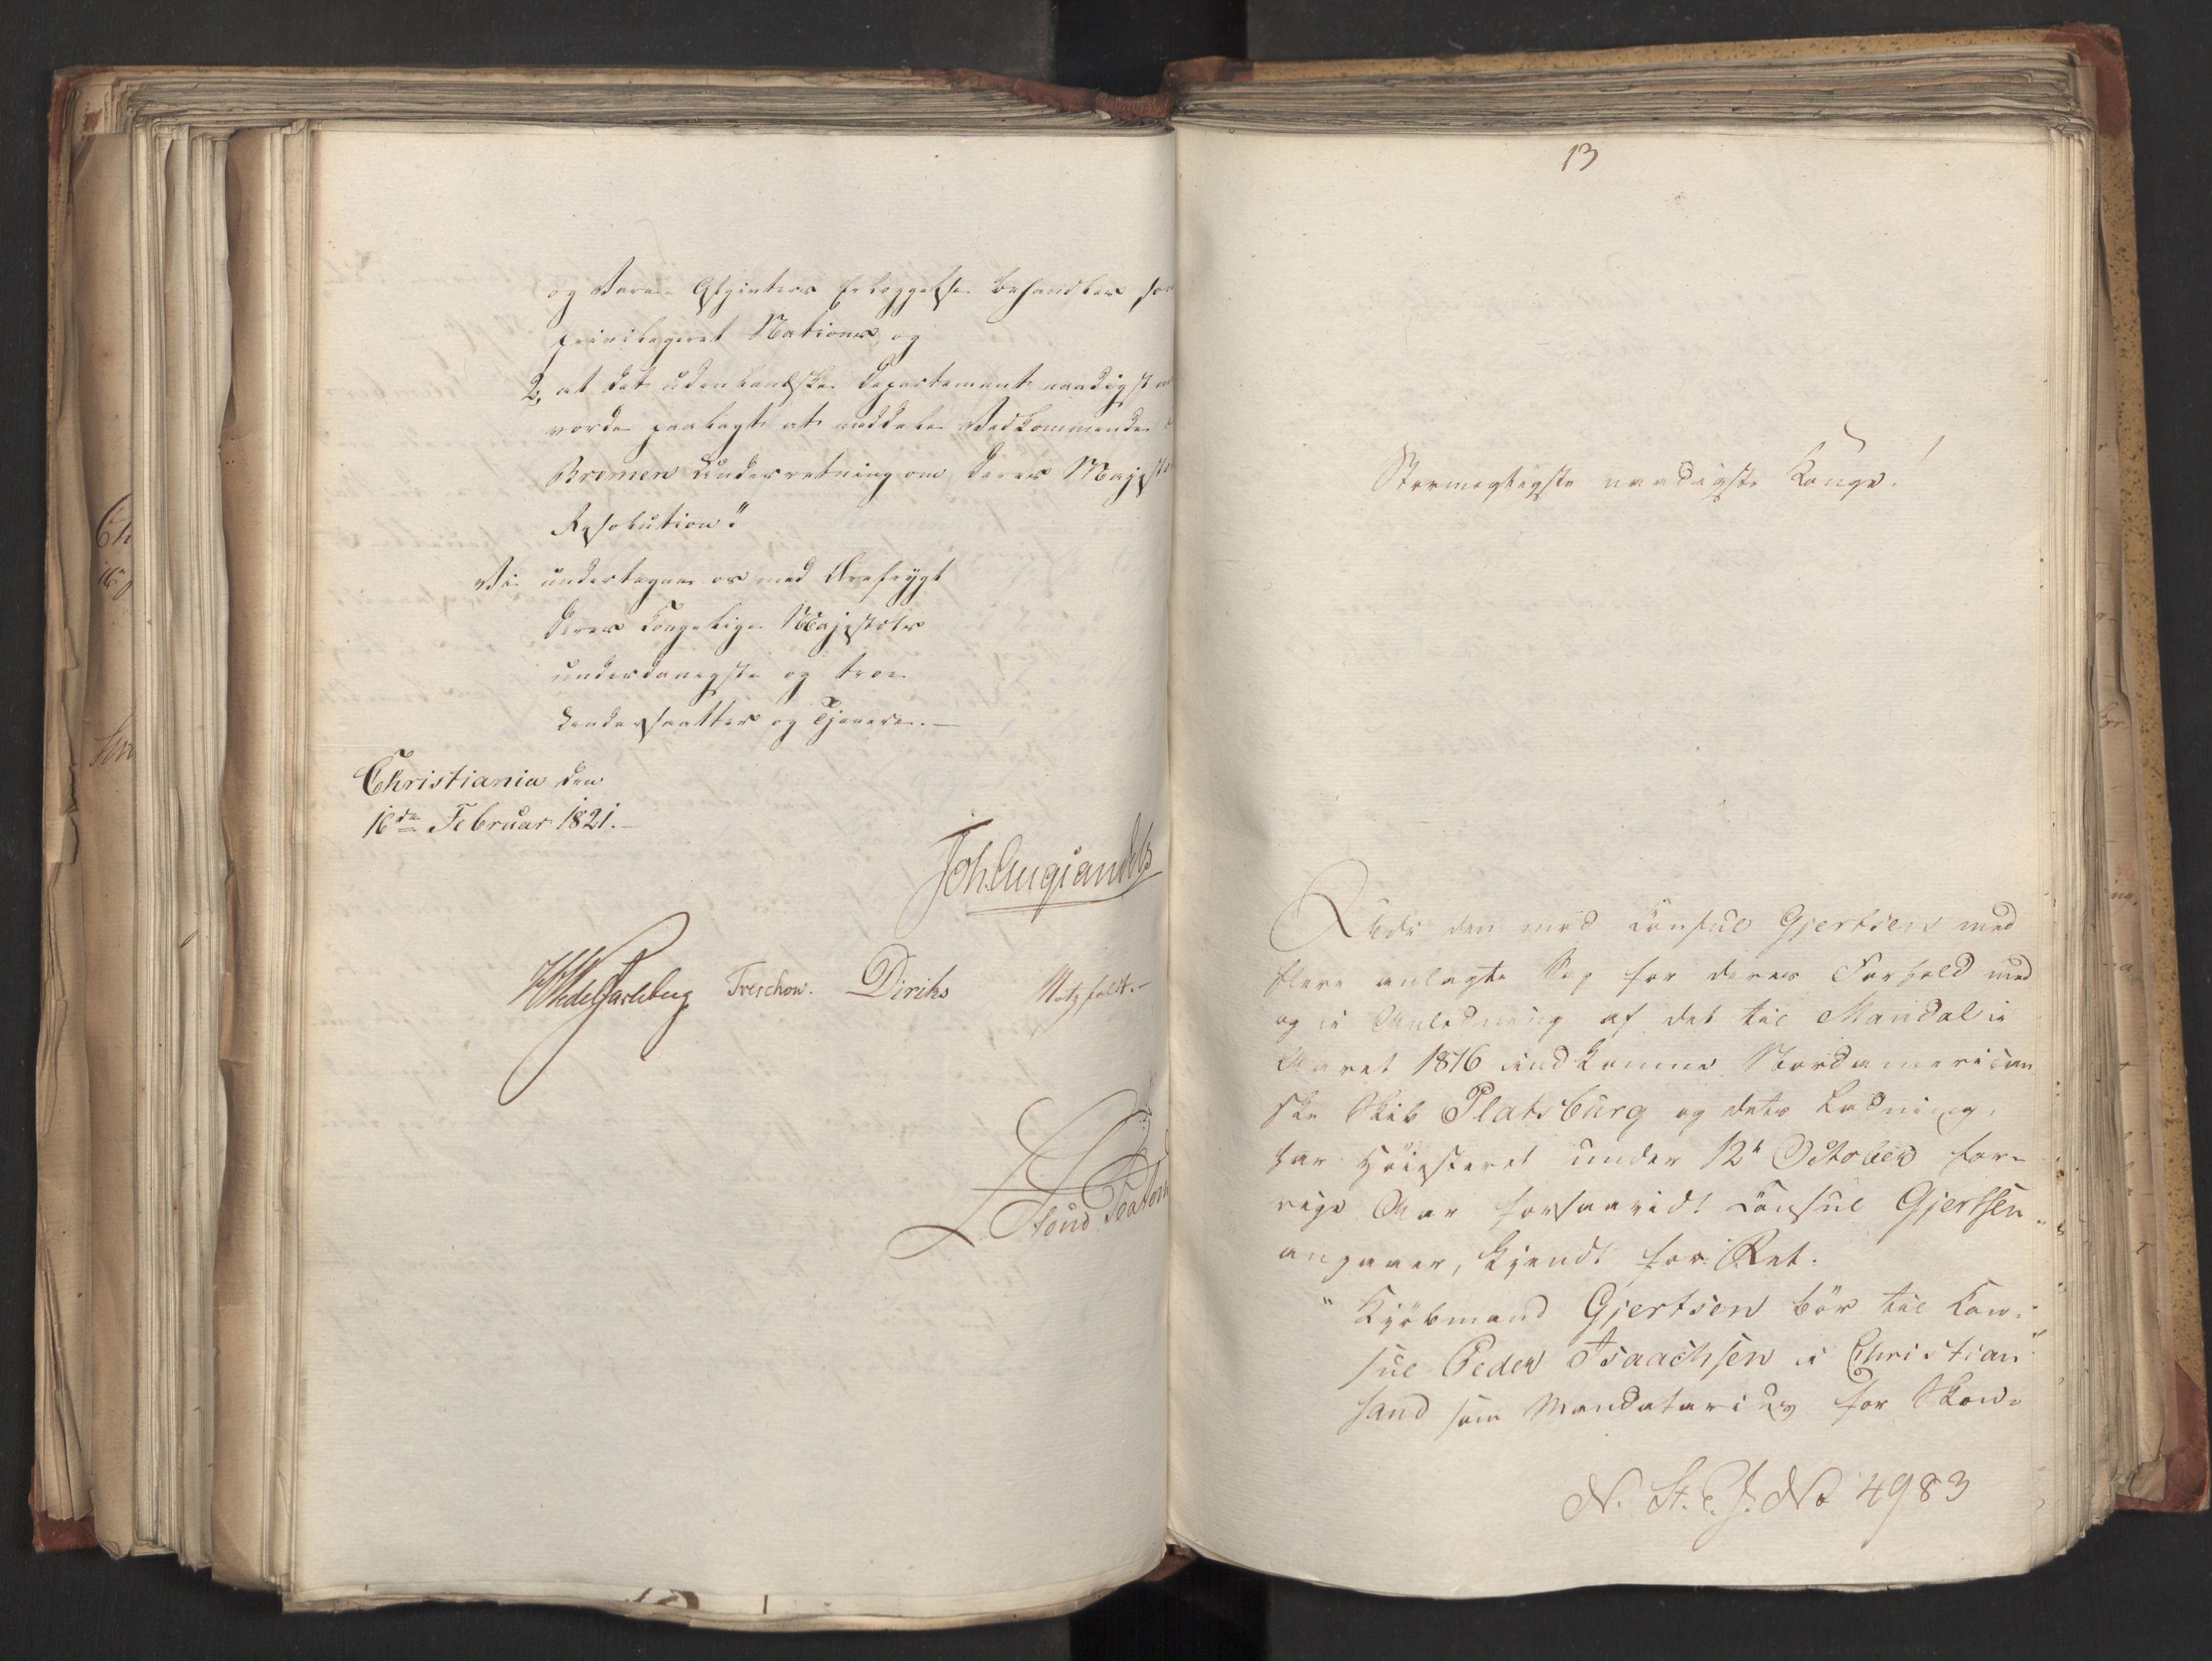 og Vare- Afgivters Erlæggelse behandles som
privilegeret Nation, og
2, at det udenlandske Departement naadigst
vorde paalagt at meddele Vedkommende i
Bremen Underretning om Deres Majestæts
Resolution."
Vi undertegne os med Ærefrygt
Deres Kongelige Majestæts
underdanigste og troe
Undersaatter og Tjenere.—
Christiania den
16de Februar 1821.—
Joh. Aug. Sandels
Wedel Jarlsberg Treschow. Diriks Motzfeldt.
13
Stormægtigste naadigste Konge!
Udi den mod Consul Gjertsen med
flere anlagte Sag for deres Forhold med
og i Anledning af det til Mandal i
Aaret 1816 indkomne Nordamerican
ske Skib Platsburg og dets Ladning,
har Höiesteret under 12t October for-
rige Aar forsaavidt Consul Gjertsen
angaaer, kjendt for Ret.
"Kjöbmand Gjertsen bör til Con-
sul Peder Isaachsen i Christian
sand som Mandatarius for Skow-
N. St. E. J. No 4983